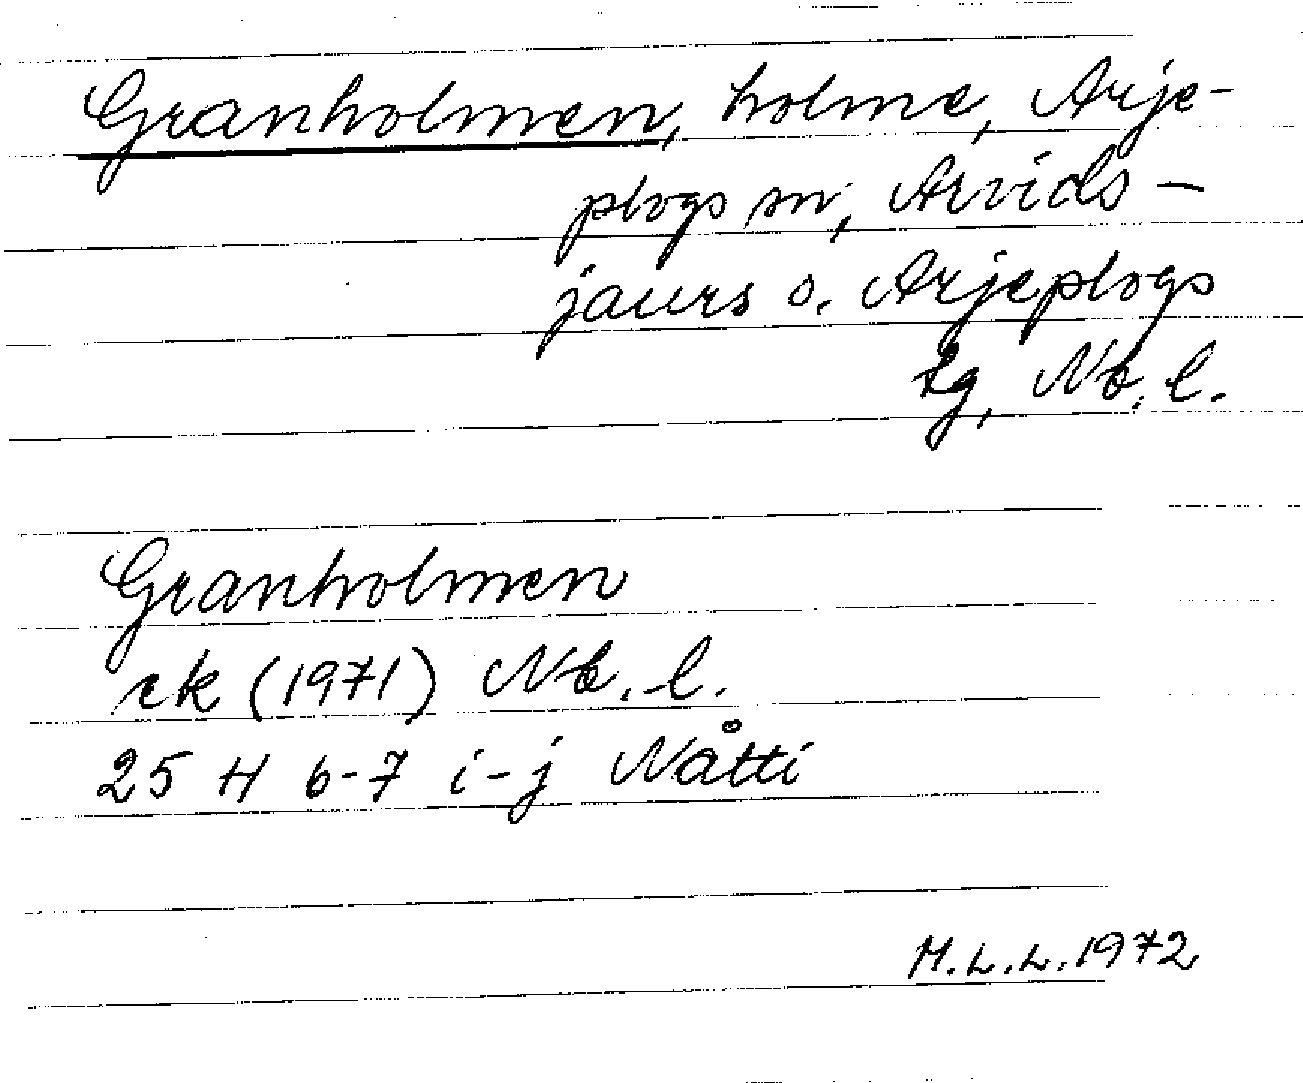 Granholmen, holme, Arje-
plogs sn, Arvids-
jaurs o. Arjeplogs
tg, Nb. l.
Granholmen
rk (1971) Nb. l.
25 H 6-7 i-j Nåtti
M.L.L. 1972